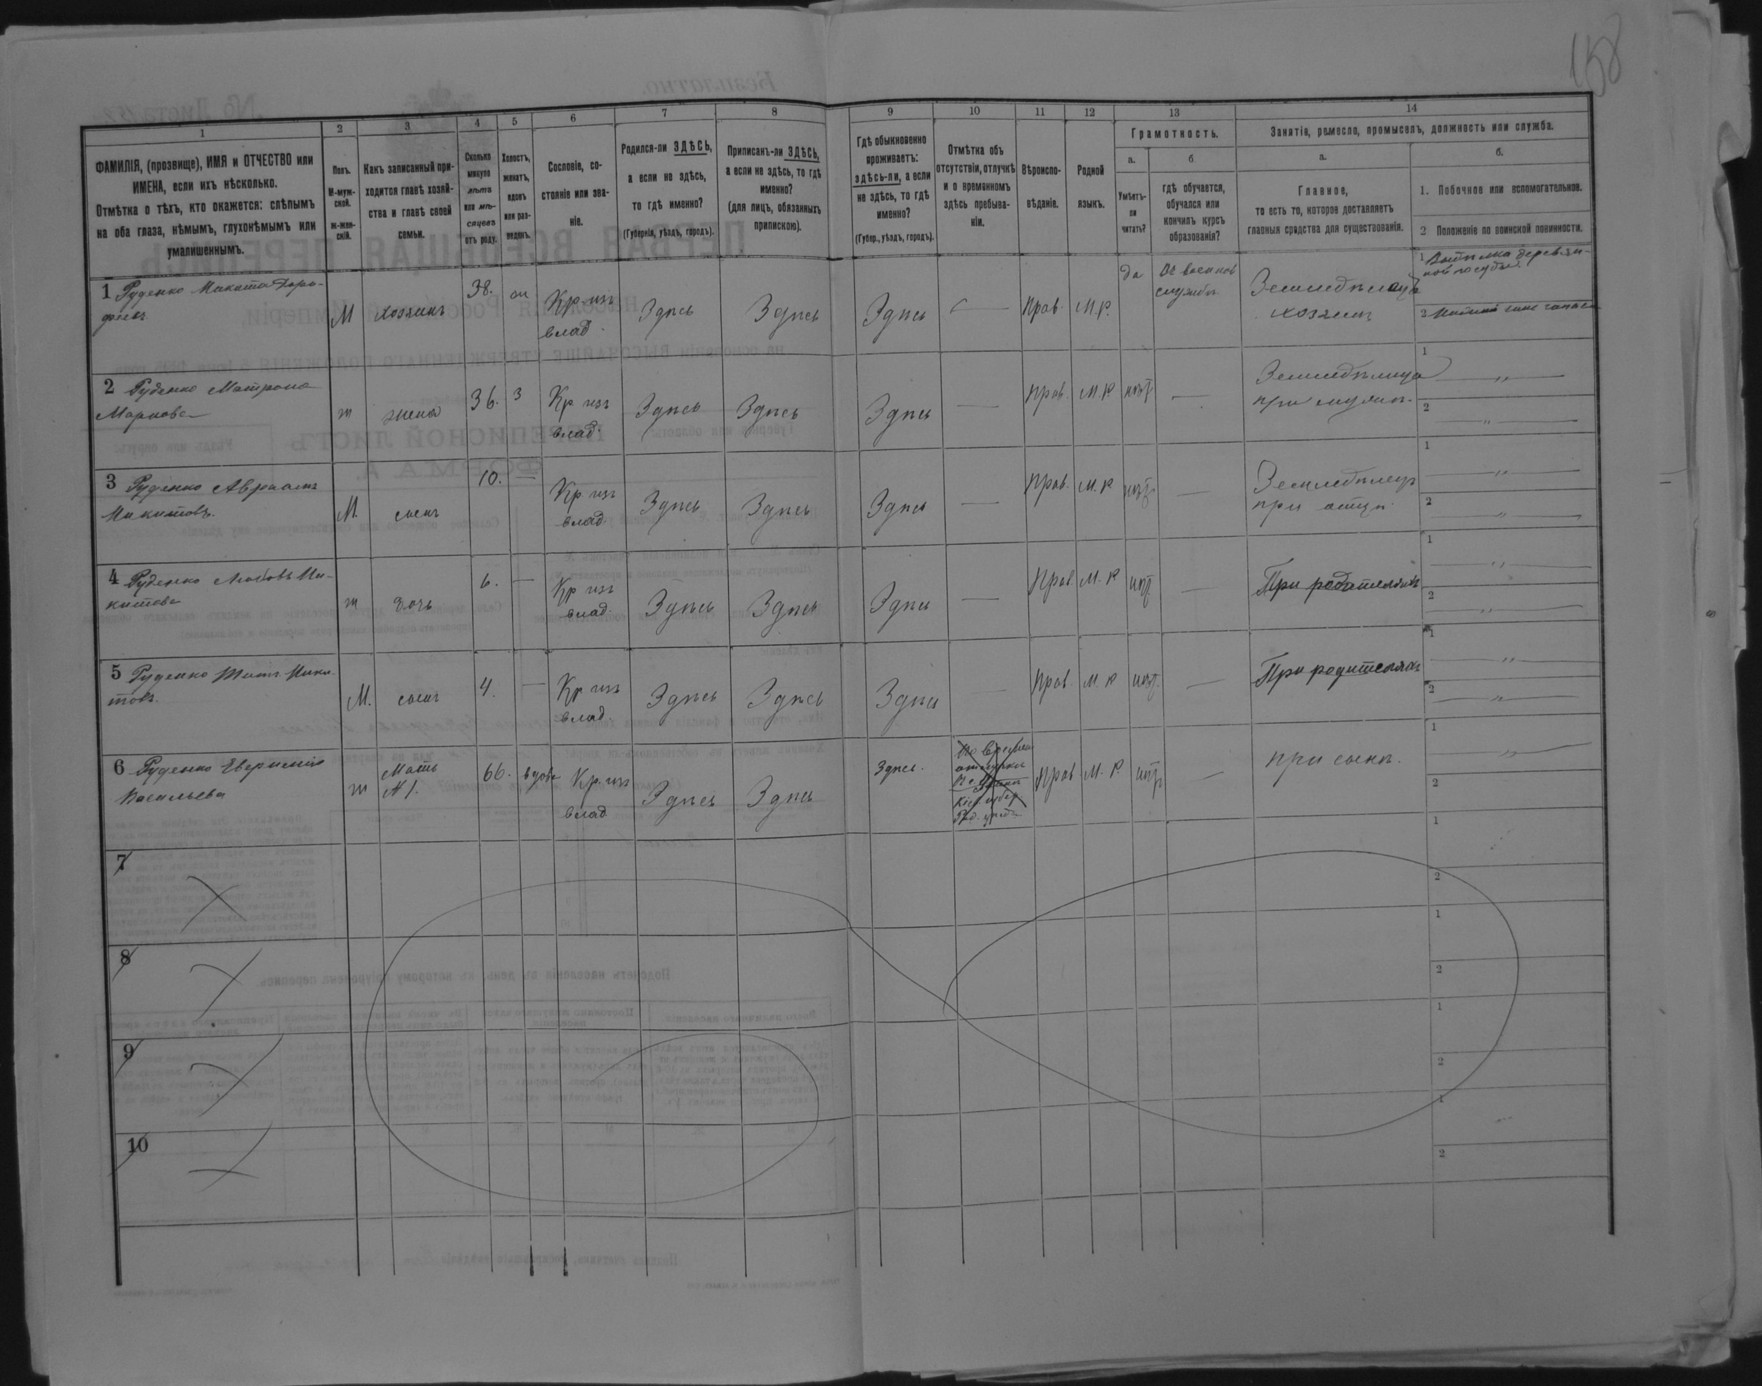 158
1
2
3
4
5
6
7
8
9
10
11
12
13
14
ФАМИЛІЯ, (прозвище), ИМЯ и ОТЧЕСТВО или
ИМЕНА, если ихъ нѣсколько.
Отмѣтка о тѣхъ, кто окажется: слѣпымъ
на оба глаза, нѣмымъ, глухонѣмымъ или
умалишеннымъ.
Полъ.
М-муж-
ской.
Ж-жен-
скій.
Какъ записанный при-
ходится главѣ хозяй-
ства и главѣ своей
семьи.
Сколько
минуло
лѣтъ
или мѣ-
сяцевъ
отъ роду.
Холостъ,
женатъ,
вдовъ
или раз-
веденъ.
Сословіе, со-
стояніе или зва-
ніе.
Родился-ли ЗДѢСЬ,
а если не здѣсь,
то гдѣ именно?
(Губернія, уѣздъ, городъ).
Приписанъ-ли ЗДѢСЬ,
а если не здѣсь, то гдѣ
именно?
(для лицъ, обязанныхъ
припискою).
Гдѣ обыкновенно
проживаетъ:
здѣсь-ли, а если
не здѣсь, то гдѣ
именно?
(Губер., уѣздъ, городъ).
Отмѣтка объ
отсутствіи, отлучкѣ
и о временномъ
здѣсь пребыва-
ніи.
Вѣроиспо-
вѣданіе.
Родной
языкъ.
Грамотность.
а.
Умѣетъ-
ли
читать?
б
гдѣ обучается,
обучался или
кончилъ курсъ
образованія?
Занятіе, ремесло, промыселъ, должность или служба.
а.
Главное,
то есть то, которое доставляетъ
главныя средства для существованія.
б.
1. Побочное или вспомогательное.
2 Положеніе по воинской повинности.
1 Руденко Микита Доро-
феев
М
хозяинъ
38.
Кр. изъ
влад.
Здѣсь
Здѣсь
Здѣсь
—
Прав.
М.Р.
да
Въ военной
службѣ
Земледѣлецъ
хозяинъ
1
2
2 Руденко Матрона
Маркова
ж
жена
36.
З
Кр изъ
влад.
Здѣсь
Здѣсь
Здѣсь
—
Прав.
М.Р
нѣтъ
—
Земледѣлица
при мужѣ.
1 — " —
2 — " —
3 Руденко Авраамъ
Микитовъ.
М.
сынъ
10.
—
Кр изъ
влад
Здѣсь
Здѣсь
Здѣсь
—
Прав.
М.Р
нѣтъ
—
Земледѣлецъ
при отцѣ.
1 — " —
2 — " —
4 Руденко Любовь Ми-
китова
ж
дочь
6.
—
Кр изъ
влад.
Здѣсь
Здѣсь
Здѣсь
—
Прав.
М.Р
нѣтъ
—
При родителяхъ
1 — " —
2 — " —
5 Руденко Мики-
товъ.
М.
сынъ
4.
—
Кр изъ
влад
Здѣсь
Здѣсь
Здѣсь
—
Прав.
М.Р
нѣтъ
—
При родителяхъ
1 — " —
2 — " —
6 Руденко
Васильева
ж
Мать
№1.
66.
вдова
Кр. изъ
влад
Здѣсь
Здѣсь
Здѣсь.
Прав
М.Р.
нѣтъ
—
при сынѣ.
1 — " —
2
7
1
2
8
1
2
9
1
2
10
1
2